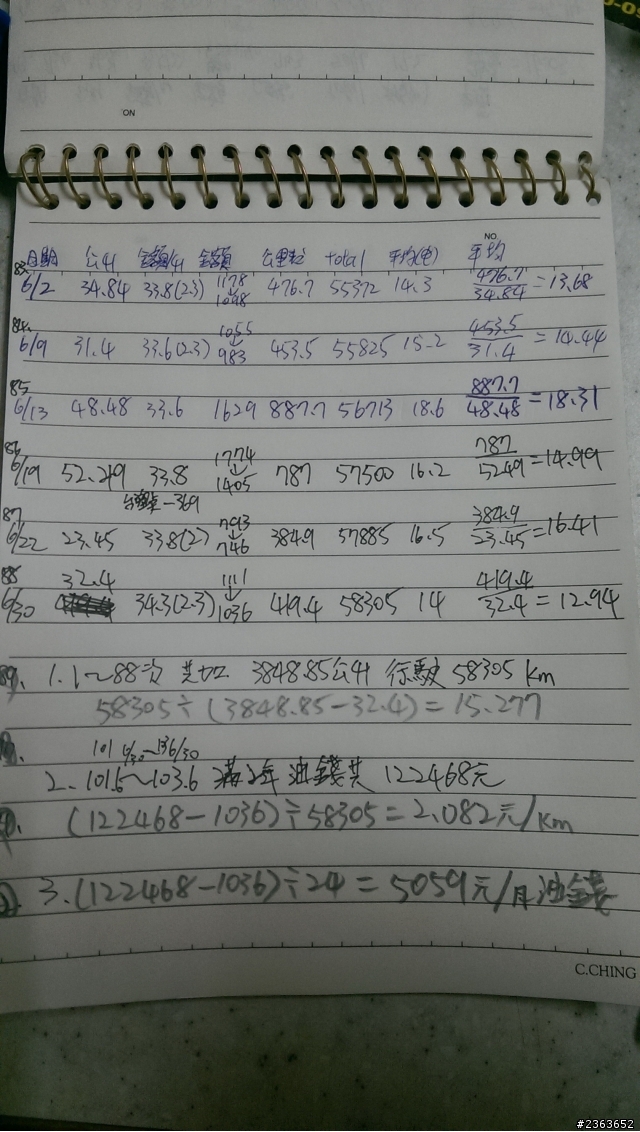 ON
NO
日期 公升 金額/升 金額 公里數 total 平均(電) 平均
83
6/2 34.84 33.8(2.3) 1178↓1098 476.7 55372 14.3 476.7/34.84=13.68
84
6/9 31.4 33.6(2.3) 1055↓983 453.5 55825 15.2 453.5/31.4=14.44
85
6/13 48.48 33.6 1629 887.7 56713 18.6 887.7/48.48=18.31
86
6/19 52.49 33.8 1774↓1405 787 57500 16.2 787/52.49=14.99
-369
87
6/22 23.45 33.8(2) 793↓746 384.9 57885 16.5 384.9/23.45=16.41
88
6/30 32.4 34.3(2.3) 1111↓1036 419.4 58305 14 419.4/32.4=12.94
89. 1. 1~88次 共加 3848.85公升 行駛 58305 km
58305÷(3848.85-32.4)=15.277
2. 101.6~103.6 滿2年 油錢共 122468元
(122468-1036)÷58305=2.082元/km
3. (122468-1036)÷24=5059元/月油錢
C.CHING
#2363652